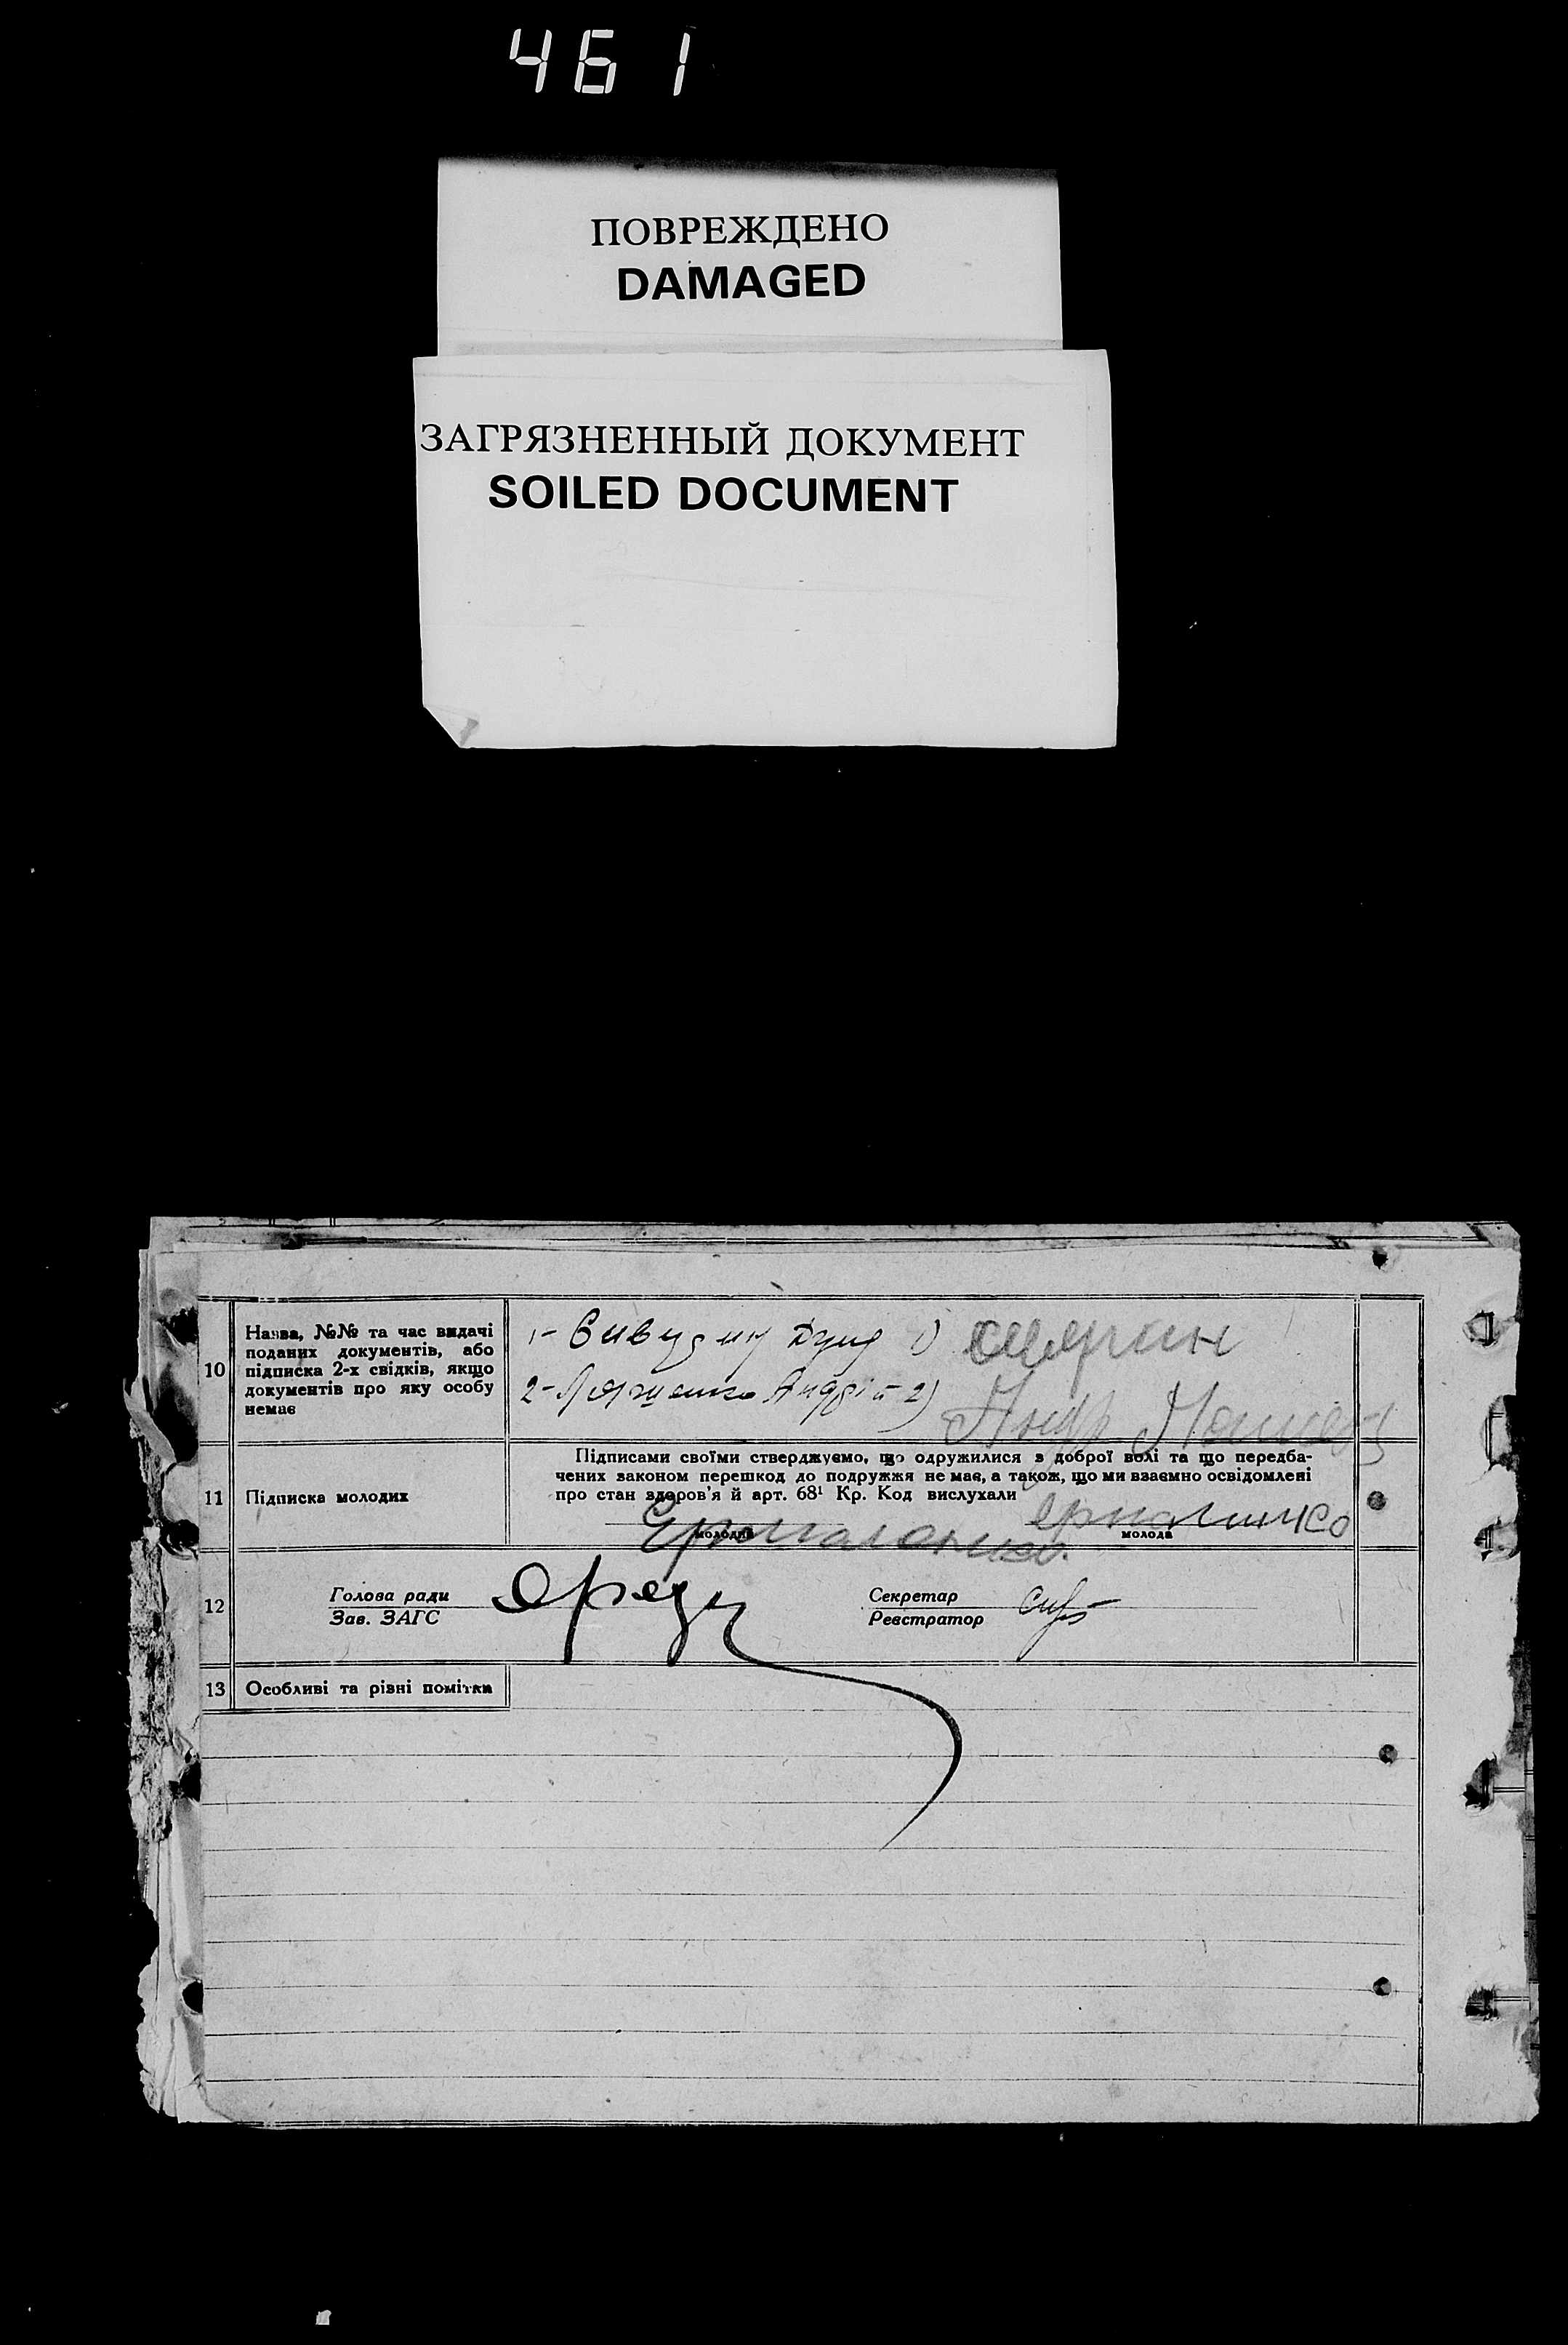 461
ПОВРЕЖДЕНО
DAMAGED
ЗАГРЯЗНЕННЫЙ ДОКУМЕНТ
SOILED DOCUMENT
10
Назва, №№ та час видачі
поданих документів, або
підписка 2-х свідків, якщо
документів про яку особу
немає
1-
1)
2- Андрій 2)
11
Підписка молодих
Підписами своїми стверджуємо, що одружилися з доброї волі та що передба-
чених законом перешкод до подружжя не має, а також, що ми взаємно освідомлені
про стан здоров'я й арт. 68¹ Кр. Код вислухали
молодий
молода
12
Голова ради
Зав. ЗАГС
Секретар
Реєстратор
13
Особливі та різні помітки